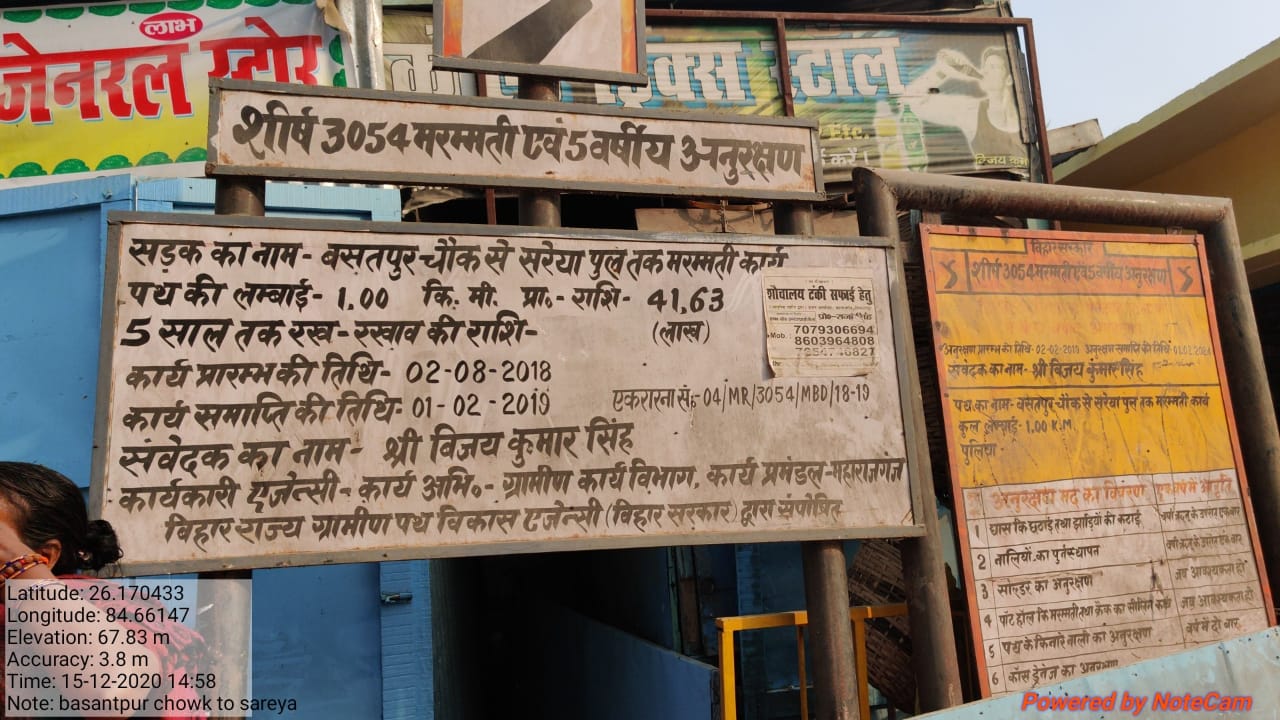 लाभ
जेनरल स्टोर
ड्रिंक्स स्टॉल
शीर्ष 3054 मरम्मती एवं 5 वर्षीय अनुरक्षण
सड़क का नाम- बसतपुर चौक से सरेया पुल तक मरम्मती कार्य
पथ की लम्बाई- 1.00 कि. मी. प्रा.- राशि- 41,63
5 साल तक रख-रखाव की राशि- (लाख)
कार्य प्रारम्भ की तिथि- 02-08-2018
कार्य समाप्ति की तिथि- 01-02-2019 एकरारना सं:- 04/MR/3054/MBD/18-19
संवेदक का नाम- श्री विजय कुमार सिंह
कार्यकारी एजेन्सी- कार्य अभि०- ग्रामीण कार्य विभाग, कार्य प्रमंडल-महाराजगंज
बिहार राज्य ग्रामीण पथ विकास एजेन्सी (बिहार सरकार) द्वारा संपोषित
शौचालय टंकी सफाई हेतु
7079306694
Mob. 8603964808
बिहार सरकार
शीर्ष 3054 मरम्मती एवं 5 वर्षीय अनुरक्षण
अनुरक्षण प्रारम्भ की तिथि- 02-02-2019 अनुरक्षण समाप्ति की तिथि-
संवेदक का नाम- श्री विजय कुमार सिंह
पथ का नाम- बसतपुर चौक से सरेया पुल तक मरम्मती कार्य
कुल लम्बाई- 1.00 K.M
पुलिया-
अनुरक्षण मद का विवरण एक वर्ष में आवृति
1 घास कि छटाई तथा झाड़ियों की कटाई
2 नालियों का पुर्नस्थापन
3 सोल्डर का अनुरक्षण जब आवश्यकता हो
4 पॉट होल कि मरम्मती तथा क्रैक का सीलिंग कार्य जब आवश्यकता हो
5 पथ के किनारे नाली का अनुरक्षण वर्ष में दो बार
6 क्रॉस ड्रेनेज का अनुरक्षण
Latitude: 26.170433
Longitude: 84.66147
Elevation: 67.83 m
Accuracy: 3.8 m
Time: 15-12-2020 14:58
Note: basantpur chowk to sareya
Powered by NoteCam